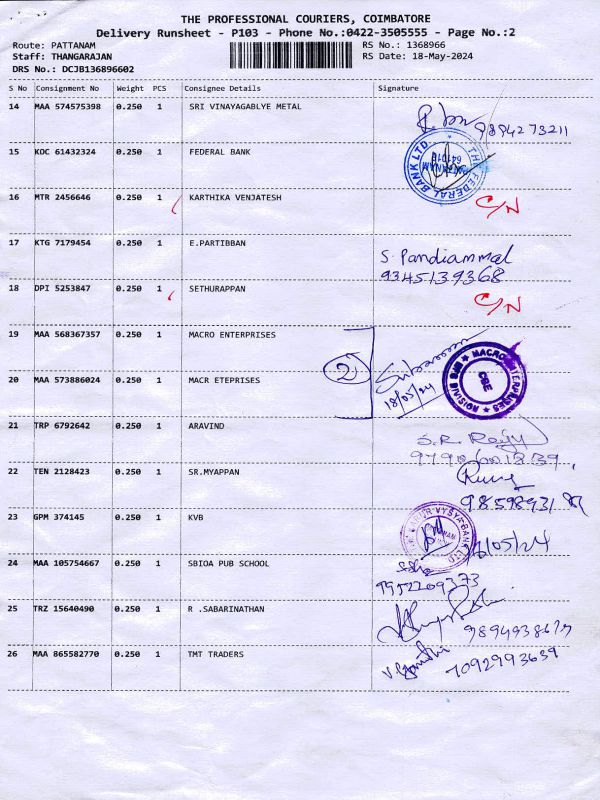 THE PROFESSIONAL COURIERS, COIMBATORE
Delivery Runsheet - P103 - Phone No.:0422-3505555 - Page No.:2
Route: PATTANAM
RS No.: 1368966
Staff: THANGARAJAN
RS Date: 18-May-2024
DRS No.: DCJB136896602
S No Consignment No Weight PCS Consignee Details Signature
14 MAA 574575398 0.250 1 SRI VINAYAGABLYE METAL
9894273211
15 KDC 61432324 0.250 1 FEDERAL BANK
THE FEDERAL BANK LTD
16 MTR 2456646 0.250 1 KARTHIKA VENJATESH C/N
17 KTG 7179454 0.250 1 E.PARTIBBAN
S. Pandiammal
9345139368
18 DPI 5253847 0.250 1 SETHURAPPAN C/N
19 MAA 568367357 0.250 1 MACRO ENTERPRISES
2
MACRO ENTERPRISES
CBE
20 MAA 573886024 0.250 1 MACR ETEPRISES
18/05/24
21 TRP 6792642 0.250 1 ARAVIND
S.R.
22 TEN 2128423 0.250 1 SR.MYAPPAN
23 GPM 374145 0.250 1 KVB
VYSYA BANK LTD
/05/24
24 MAA 105754667 0.250 1 SBIOA PUB SCHOOL
9952209373
25 TRZ 15640490 0.250 1 R .SABARINATHAN
26 MAA 865582770 0.250 1 TMT TRADERS
7092993639